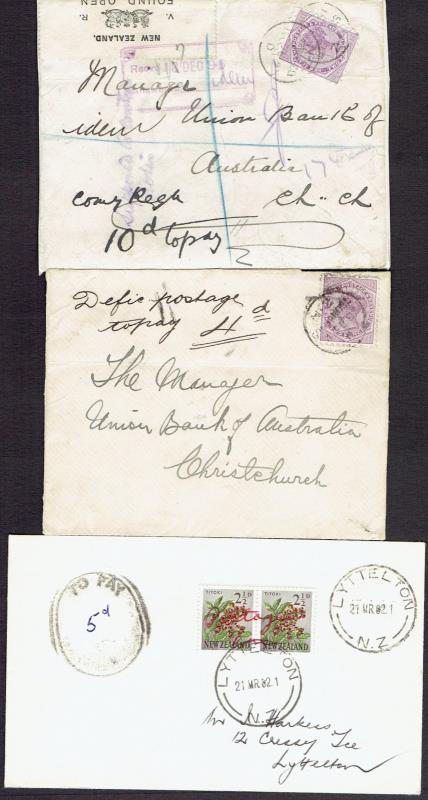 R. V.
FOUND OPEN
NEW ZEALAND.
DEC 9
Manager
idem Union Bank of
Australia
Ch. Ch
Compy Regn
17
10d to pay
Defic postage
to pay 4d
The Manager
Union Bank of Australia
Christchurch
TO PAY
5d
TITOKI 2½D
TITOKI 2½D
NEW ZEALAND
NEW ZEALAND
LYTTELTON
21 MR.62.1
N.Z
LYTTELTON
21 MR.62.1
N.Z
Mr N. Harkess
12 Cressy Tce
Lyttelton